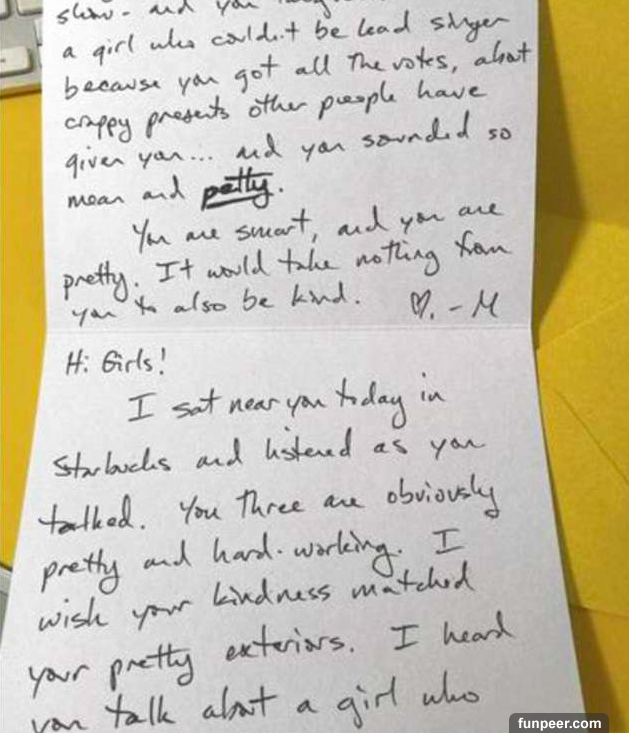 show. and you
a girl who couldn't be lead singer
because you got all the votes, about
crappy presents other people have
given you... and you sounded so
mean and petty.
You are smart, and you are
pretty. It would take nothing from
you to also be kind. ♡. - M
Hi Girls!
I sat near you today in
Starbucks and listened as you
talked. You three are obviously
pretty and hard-working. I
wish your kindness matched
your pretty exteriors. I heard
you talk about a girl who
funpeer.com